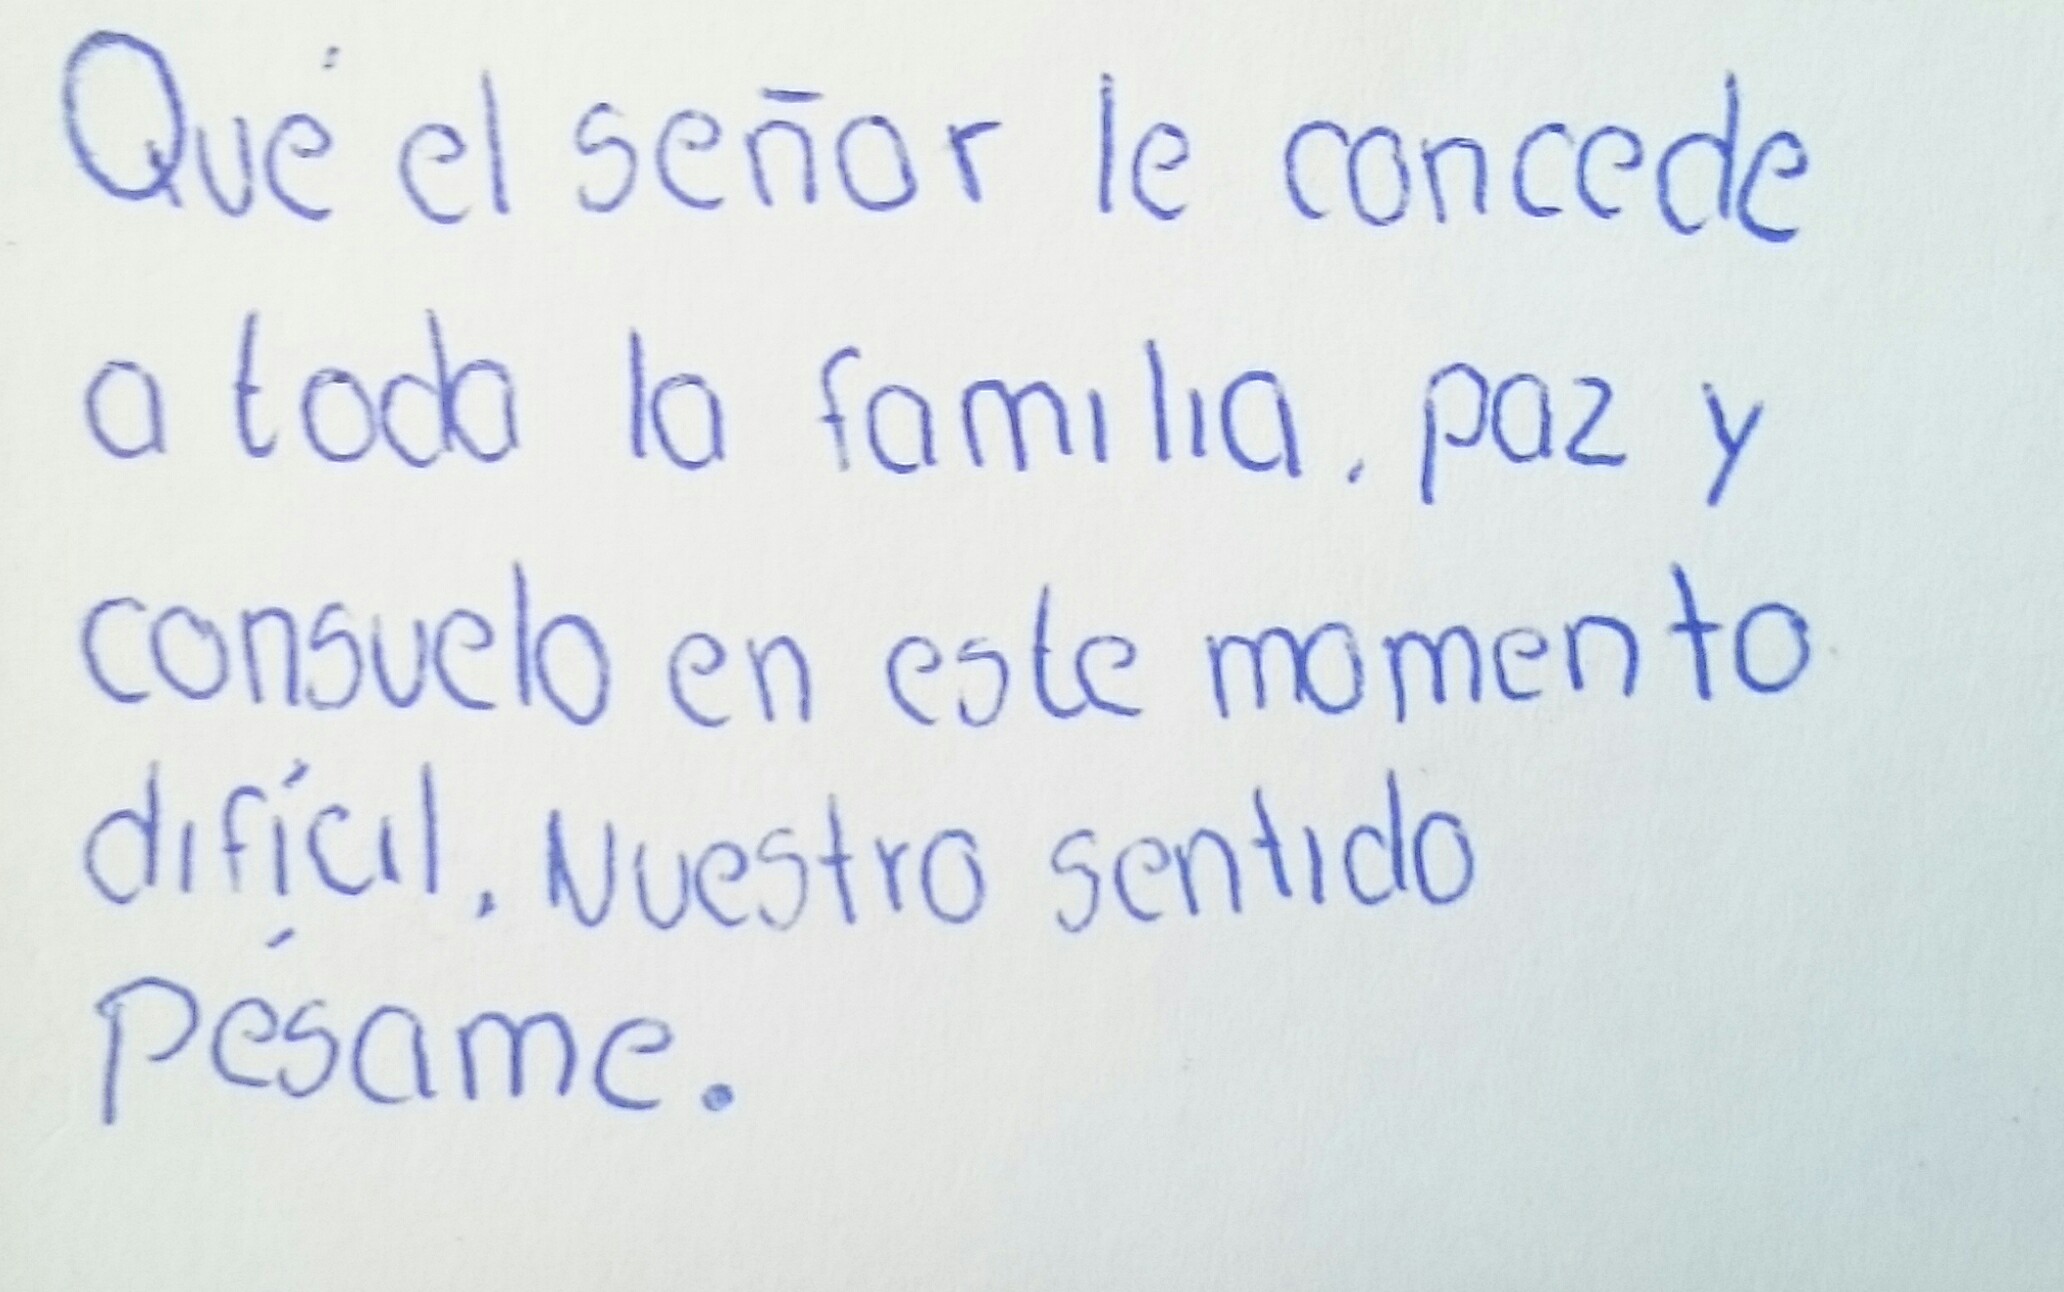 Qué el señor le concede
a toda la familia. paz y
consuelo en este momento
difícil. Nuestro sentido
Pésame.